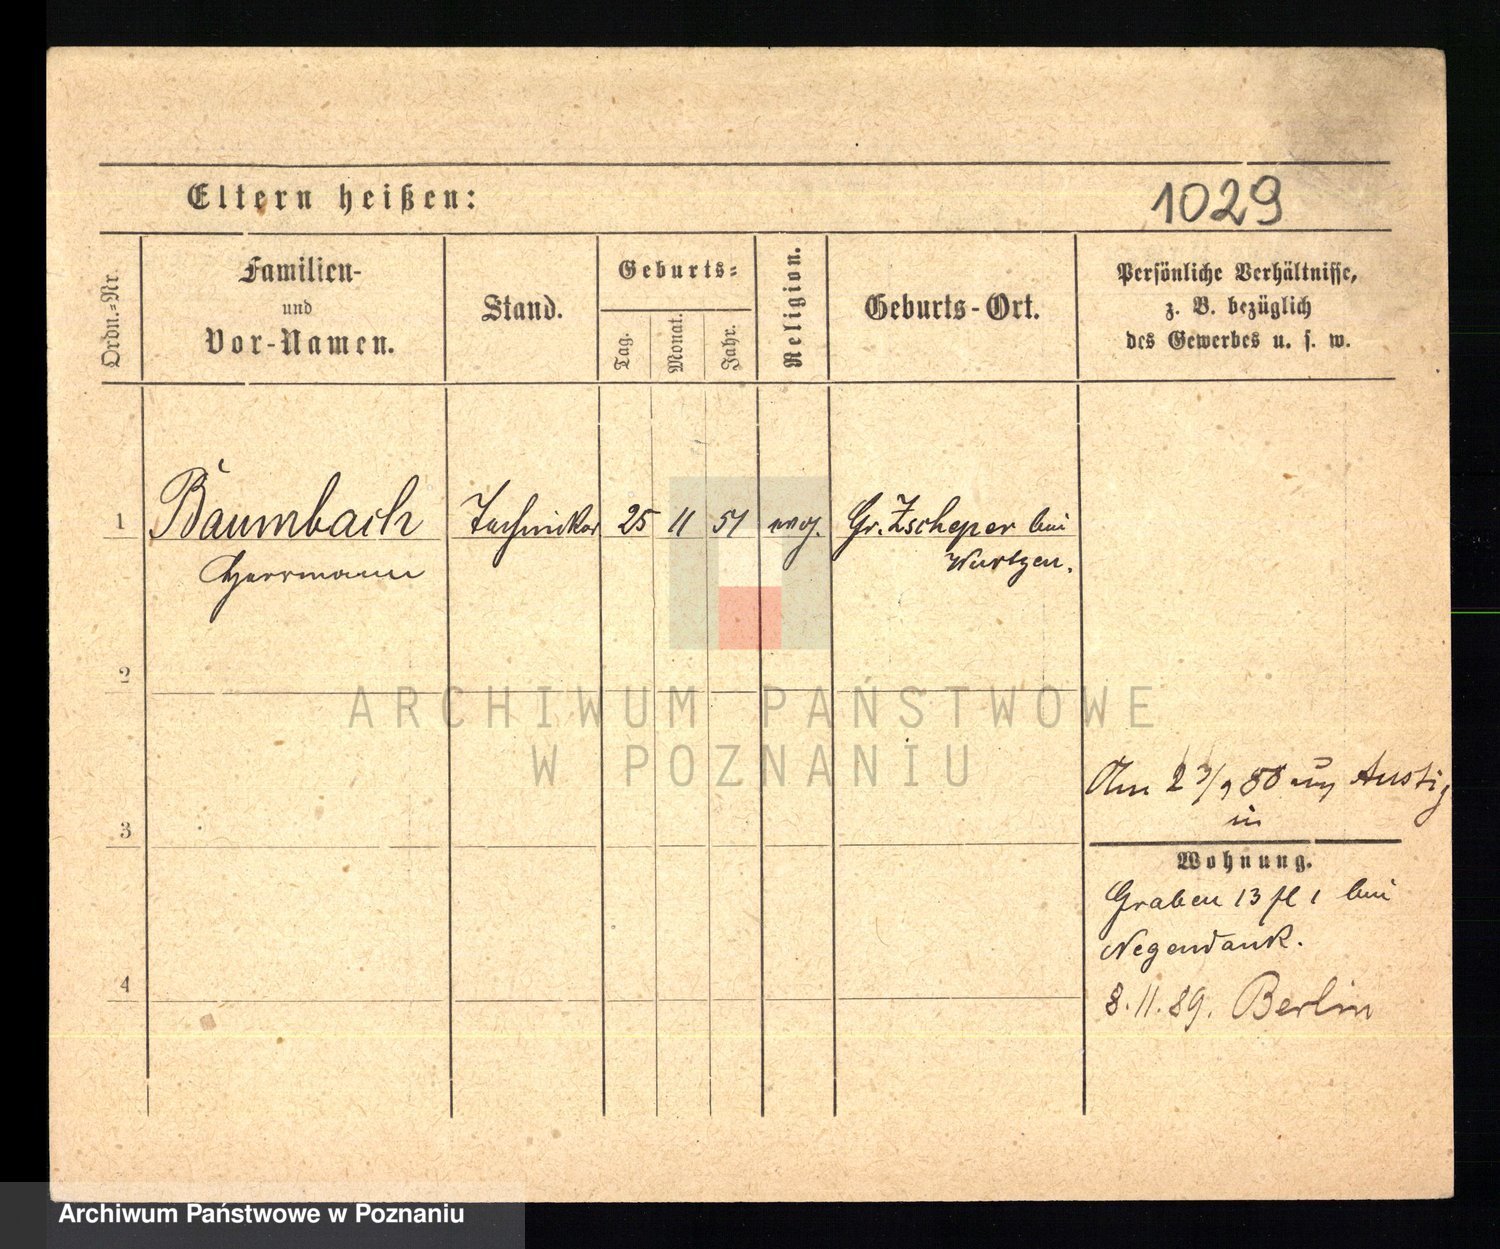 Eltern heißen:
1029
Ordn.-Nr.
Familien-
und
Vor-Namen.
Stand.
Geburts-
Tag.
Monat.
Jahr.
Religion.
Geburts-Ort.
Persönliche Verhältnisse,
z. B. bezüglich
des Gewerbes u. s. w.
1
Baumbach
Herrmann
Techniker
25
11
51
evg.
Gr. Zscheper bei
Wurtzen.
2
ARCHIWUM PAŃSTWOWE
W POZNANIU
3
Am 23/9 88
in
Wohnung.
Graben 13 pt 1 bei
Negendank.
4
8.11.89. Berlin
Archiwum Państwowe w Poznaniu